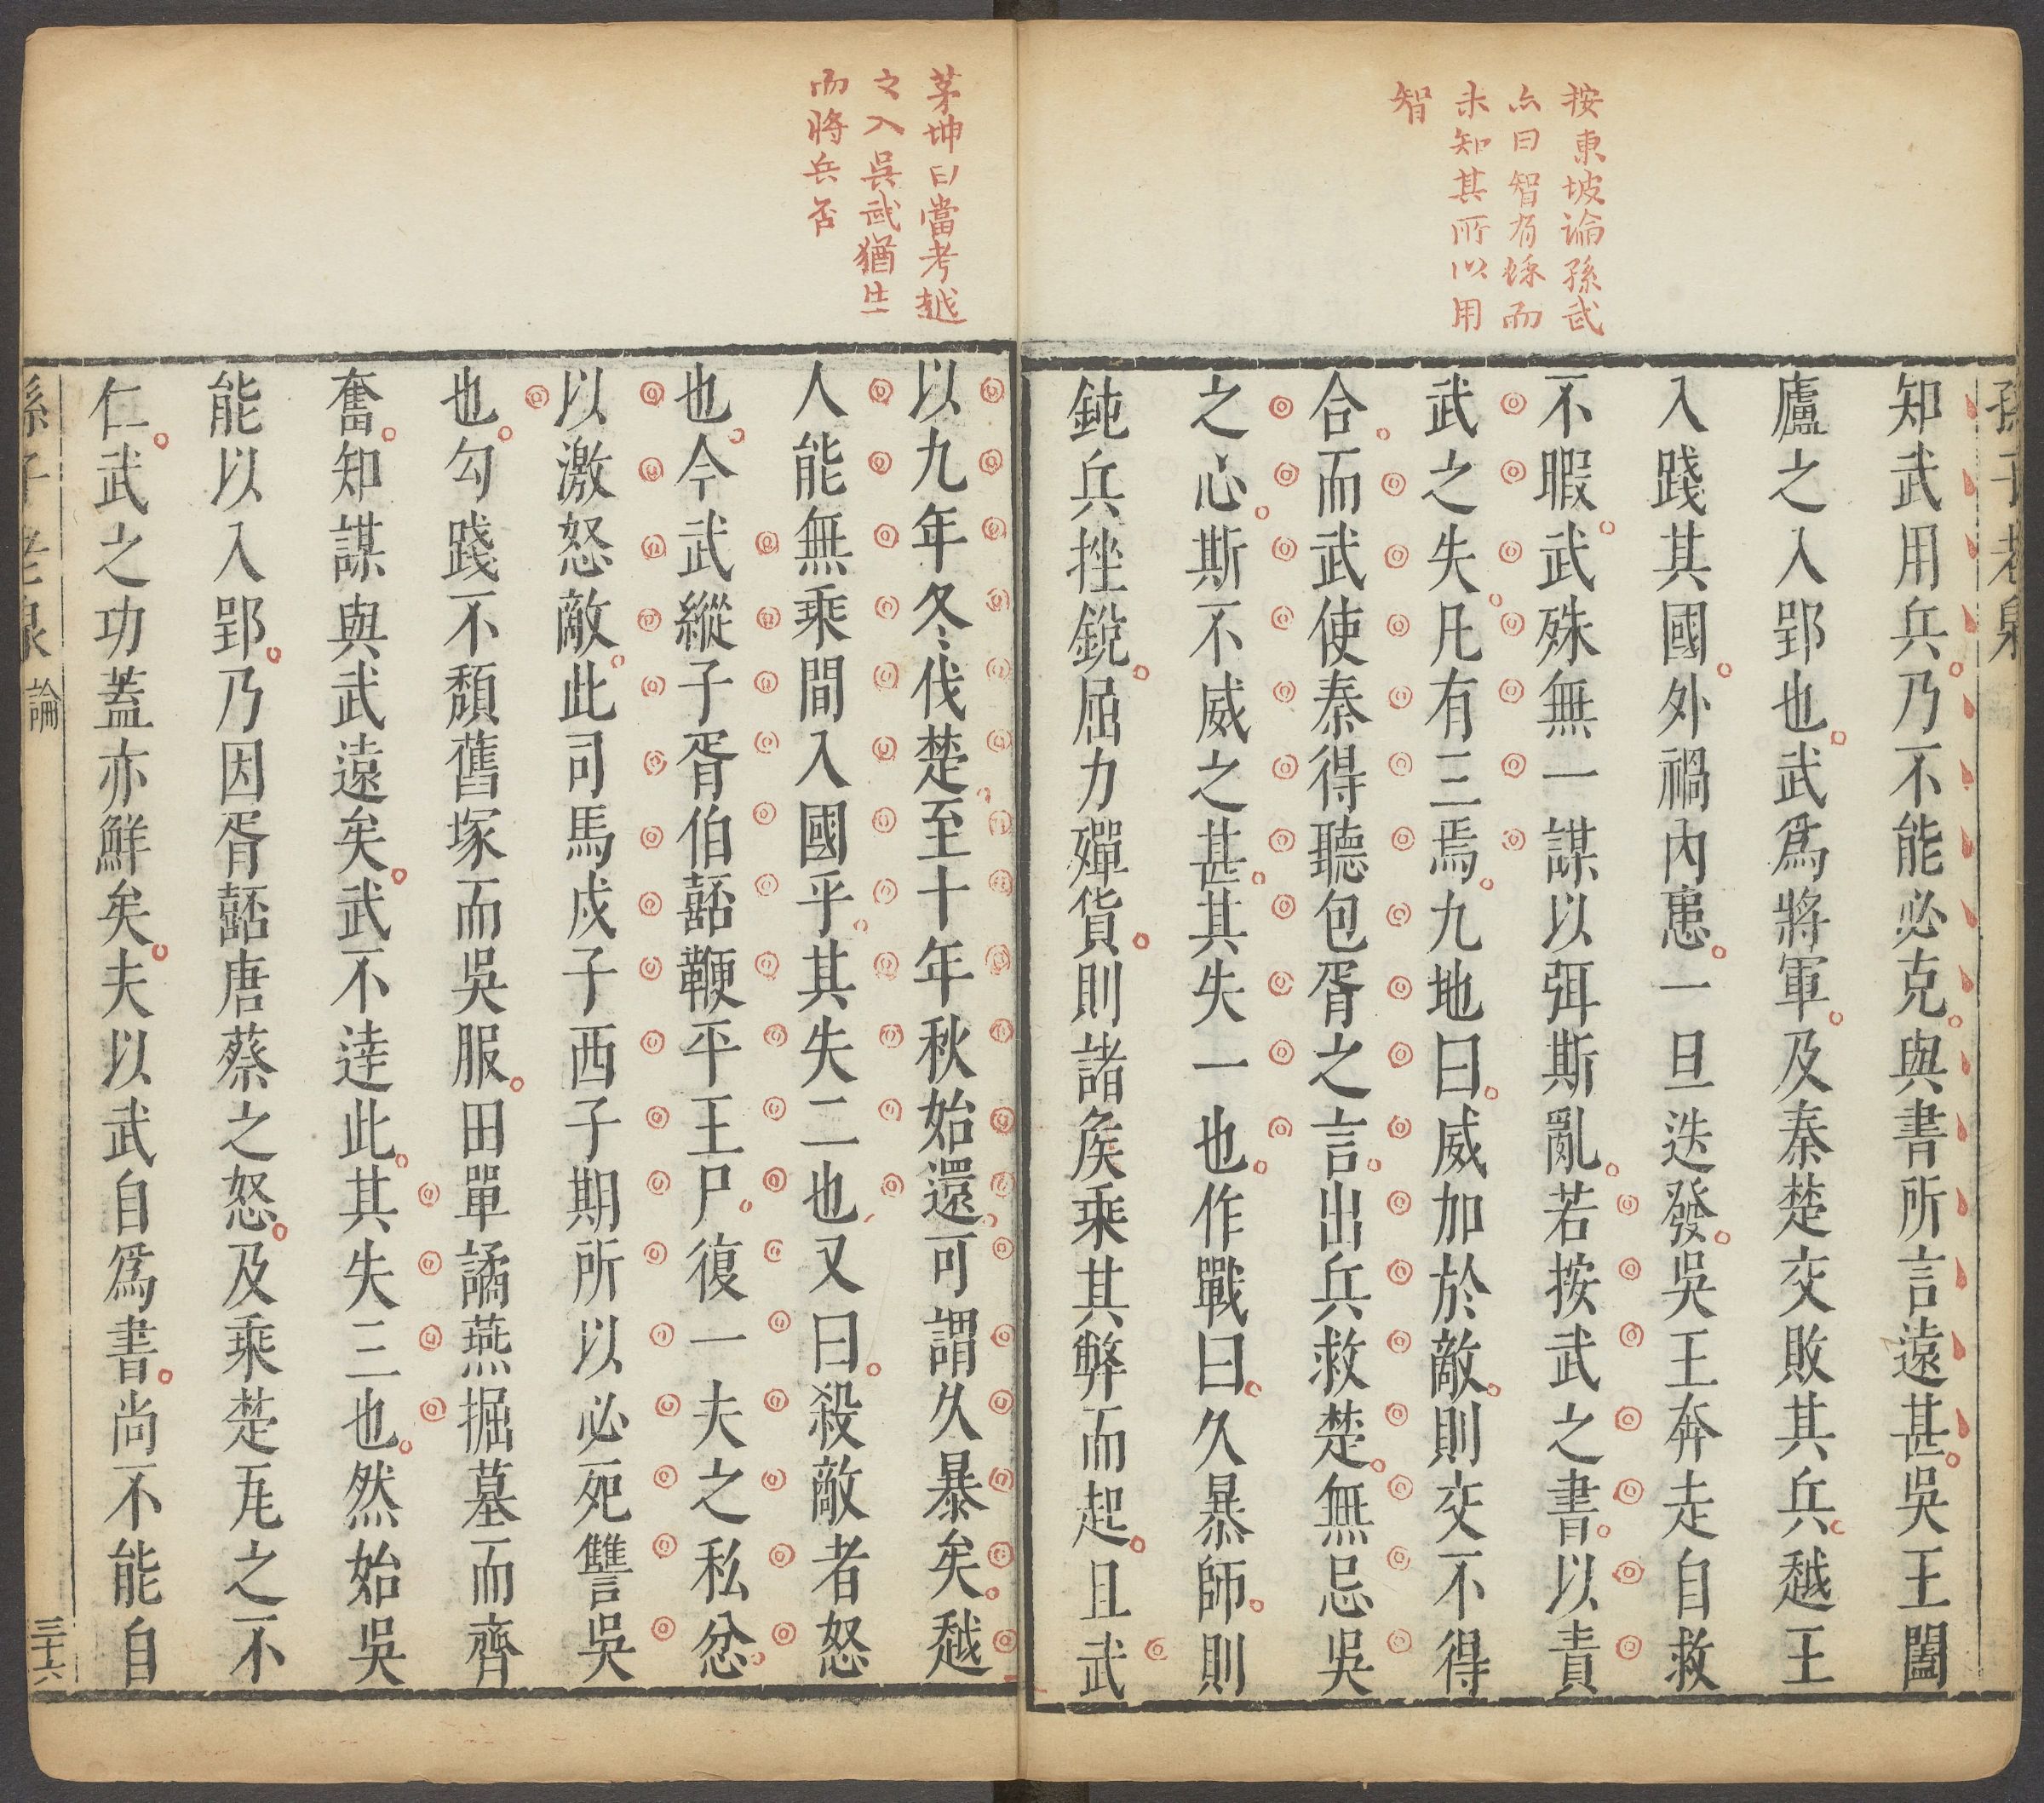 按東坡論孫武
亦曰智有餘而
未知其所以用
智
知武用兵乃不能必克與書所言遠甚吳王闔
廬之入郢也武爲將軍及秦楚交敗其兵越王
入踐其國外禍內患一旦迭發吳王奔走自救
不暇武殊無一謀以弭斯亂若按武之書以責
武之失凡有三焉九地曰威加於敵則交不得
合而武使秦得聽包胥之言出兵救楚無忌吳
之心斯不威之甚其失一也作戰曰久暴師則
鈍兵挫銳屈力殫貨則諸侯乘其弊而起且武
茅坤曰當考越
之入吳武猶生
而將兵否
以九年冬伐楚至十年秋始還可謂久暴矣越
人能無乘間入國乎其失二也又曰殺敵者怒
也今武縱子胥伯嚭鞭平王尸復一夫之私忿
以激怒敵此司馬戍子西子期所以必死讐吳
也勾踐不頹舊塚而吳服田單譎燕掘墓而齊
奮知謀與武遠矣武不達此其失三也然始吳
能以入郢乃因胥嚭唐蔡之怒及乘楚瓦之不
仁武之功蓋亦鮮矣夫以武自爲書尚不能自
孫子老泉 論
三十六